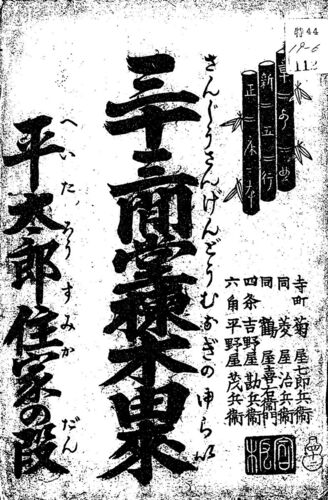 特44
19-6
112
新五行
正本
寺町 菊屋七郎兵衛
同 菱屋治兵衛
同 鶴屋喜右衛門
四条 吉野屋勘兵衛
六角 平野屋茂兵衛
官板
さんじうさんげんどうむなぎのゆらい
三十三間堂棟木由来
へいたろうすみか だん
平太郎住家の段